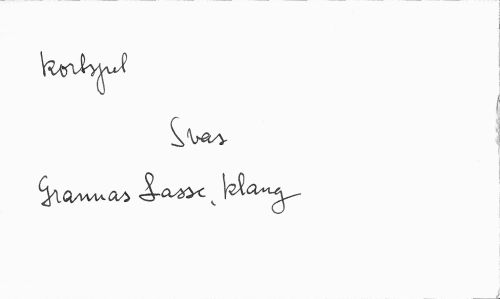 kortspel
Svas
Grannas Lasse, klang